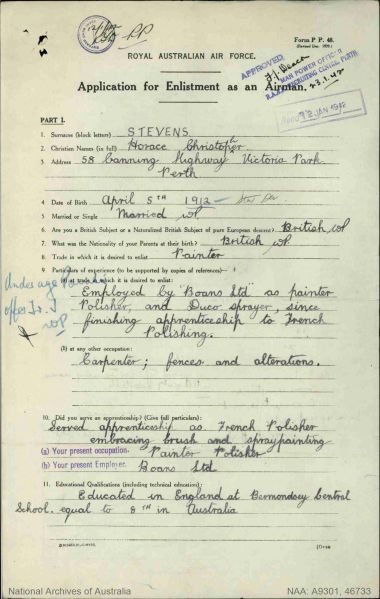 12/1/42
PP
Form P.P. 48.
ROYAL AUSTRALIAN AIR FORCE.
APPROVED
MAN POWER OFFICER
R.A.A.F. RECRUITING CENTRE, PERTH
23.1.42
Application for Enlistment as an Airman.
12 JAN 1942
PART I.
1. Surname (block letters) STEVENS
2. Christian Names (in full) Horace Christopher
3. Address 58 Canning Highway Victoria Park
Perth
4. Date of Birth April 5TH 1912
5. Married or Single Married WP
6. Are you a British Subject or a Naturalized British Subject of pure European descent? British WP
7. What was the Nationality of your Parents at their birth? British WP
8. Trade in which it is desired to enlist Painter
9. Particulars of experience (to be supported by copies of references)—
(a) at trade in which it is desired to enlist:
Under age
Employed by "Boans Ltd" as painter
Polisher, and Duco sprayer, since
finishing apprenticeship to French
Polishing.
WP
(b) at any other occupation:
Carpenter; fences and alterations.
10. Did you serve an apprenticeship? (Give full particulars):
Served apprenticeship as French Polisher
embracing brush and spraypainting
(a) Your present occupation. Painter Polisher
(b) Your present Employer. Boans Ltd
11. Educational Qualifications (including technical education):
Educated in England at Bermondsey Central
School. equal to 8TH in Australia
National Archives of Australia
NAA: A9301, 46733